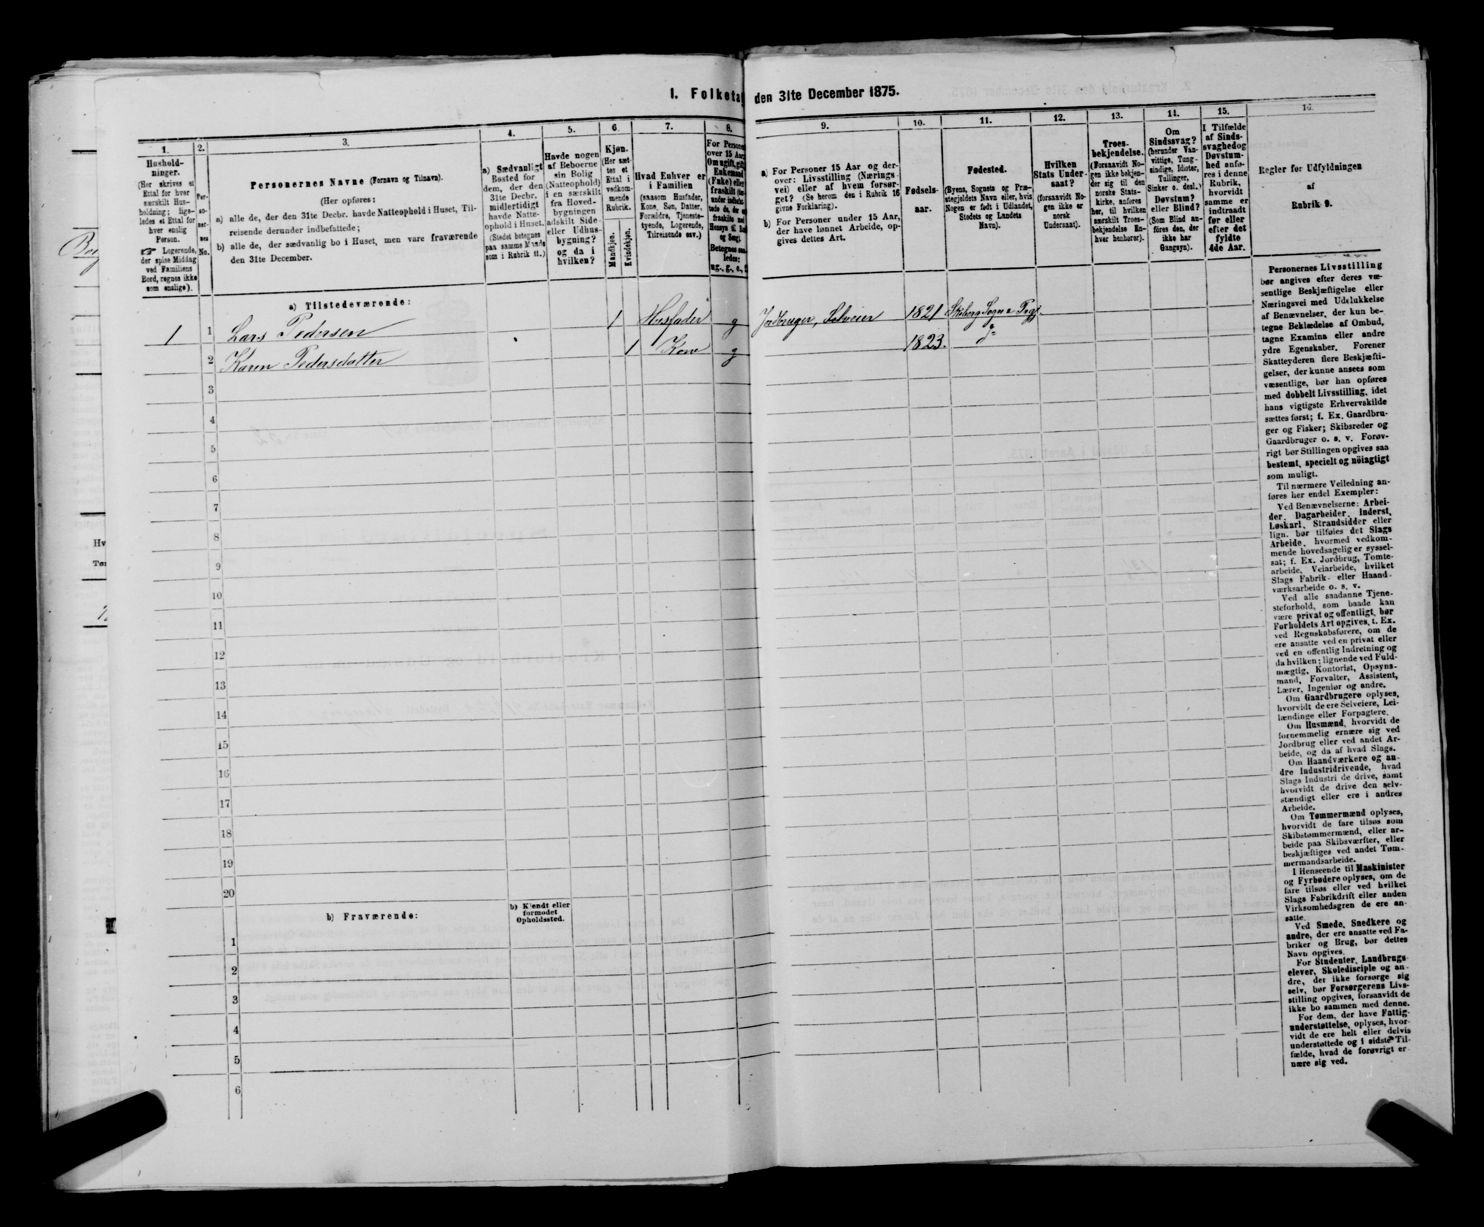 I. Folketæ
den 31te December 1875.
1.
Hushold-
ninger.
(Her skrives et
Ettal for hver
særskilt Hus-
holdning; lige-
ledes et Ettal for
hver enslig
Person.
Logerende,
der spise Middag
ved Familiens
Bord, regnes ikke
som enslige).
2.
Per-
so-
ner-
nes
No.
3.
Personernes Navne (Fornavn og Tilnavn).
(Her opføres:
a) alle de, der den 31te Decbr. havde Natteophold i Huset, Til-
reisende derunder indbefattede;
b) alle de, der sædvanlig bo i Huset, men vare fraværende
den 31te December.
4.
a) Sædvanligt
Bosted for
dem, der den
31te Decbr.
midlertidigt
havde Natte-
ophold i Huset.
(Stedet betegnes
paa samme Maade
som i Rubrik 11.)
5.
Havde nogen
af Beboerne
sin Bolig
(Natteophold)
i en særskilt
fra Hoved-
bygningen
adskilt Side-
eller Udhus-
bygning?
og da i
hvilken?
6.
Kjøn.
(Her sæt-
tes et
Ettal i
vedkom-
mende
Rubrik.
Mandkjøn.
Kvindekjøn.
7.
Hvad Enhver er
i Familien
(saasom Husfader,
Kone, Søn, Datter,
Forældre, Tjeneste-
tyende, Logerende,
Tilreisende osv.)
8.
For Persone
over 15 Aar
Om ugift, gif
Enkemand
(Enke) elle
fraskilt
9.
a) For Personer 15 Aar og der-
over: Livsstilling (Nærings-
vei) eller af hvem forsør-
get? (Se herom den i Rubrik 16
givne Forklaring).
b) For Personer under 15 Aar,
der have lønnet Arbeide, op-
gives dettes Art.
10.
Fødsels-
aar.
11.
Fødested.
(Byens, Sognets og Præ-
stegjeldets Navn eller, hvis
Nogen er født i Udlandet,
Stedets og Landets
Navn).
12.
Hvilken
Stats Under-
saat?
(forsaavidt No-
gen ikke er
norsk
Undersaat).
13.
Troes-
bekjendelse.
(Forsaavidt No-
gen ikke bekjen-
der sig til den
norske Stats-
kirke, anføres
her, til hvilken
særskilt Troes-
bekjendelse En-
hver henhører).
14.
Om
Sindssvag?
(herunder Van-
vittige, Tung-
sindige, Idioter,
Tullinger,
Sinker o. desl.)
Døvstum?
eller Blind?
(Som Blind an-
føres den, der
ikke har
Gangsyn).
15.
I Tilfælde
af Sinds-
svaghed og
Døvstum-
hed anfø-
res i denne
Rubrik,
hvorvidt
samme er
indtraadt
før eller
efter det
fyldte
4de Aar.
16.
Regler for Udfyldningen
af
Rubrik 9.
a) Tilstedeværende:
1 1 Lars Pedersen 1 Husfader g Jordbruger, Selveier 1821
2 Karen Pedersdatter 1 Kone g 1823. do
3
4
5
6
7
8
9
10
11
12
13
14
15
16
17
18
19
20
b) Fraværende:
b) Kjendt eller
formodet
Opholdssted.
1
2
3
4
5
6
Personernes Livsstilling
bør angives efter deres væ-
sentlige Beskjæftigelse eller
Næringsvei med Udelukkelse
af Benævnelser, der kun be-
tegne Beklædelse af Ombud,
tagne Examina eller andre
ydre Egenskaber. Forener
Skatteyderen flere Beskjæfti-
gelser, der kunne ansees som
væsentlige, bør han opføres
med dobbelt Livsstilling, idet
hans vigtigste Erhvervskilde
sættes først; f. Ex. Gaardbru-
ger og Fisker; Skibsreder og
Gaardbruger o. s. v. Forøv-
rigt bør Stillingen opgives saa
bestemt, specielt og nøiagtigt
som muligt.
Til nærmere Veiledning an-
føres her endel Exempler:
Ved Benævnelserne: Arbei-
der, Dagarbeider, Inderst,
Løskarl, Strandsidder eller
lign. bør tilføies det Slags
Arbeide, hvormed vedkom-
mende hovedsagelig er syssel-
sat; f. Ex. Jordbrug, Tomte-
arbeide, Veiarbeide, hvilket
Slags Fabrik- eller Haand-
værksarbeide o. s. v.
Ved alle saadanne Tjene-
steforhold, som baade kan
være privat og offentligt, bør
Forholdets Art opgives, t. Ex.
ved Regnskabsførere, om de
ere ansatte ved en privat eller
ved en offentlig Indretning og
da hvilken; lignende ved Fuld-
mægtig, Kontorist, Opsyns-
mand, Forvalter, Assistent,
Lærer, Ingeniør og andre.
Om Gaardbrugere oplyses,
hvorvidt de ere Selveiere, Lei-
lændinge eller Forpagtere.
Om Husmænd, hvorvidt de
fornemmelig ernære sig ved
Jordbrug eller ved andet Ar-
beide, og da af hvad Slags.
Om Haandværkere og an-
dre Industridrivende, hvad
Slags Industri de drive, samt
hvorvidt de drive den selv-
stændigt eller ere i andres
Arbeide.
Om Tømmermænd oplyses,
hvorvidt de fare tilsøs som
Skibstømmermænd, eller ar-
beide paa Skibsværfter, eller
beskjæftiges ved andet Tøm-
mermandsarbeide.
I Henseende til Maskinister
og Fyrbødere oplyses, om de
fare tilsøs eller ved hvilket
Slags Fabrikdrift eller anden
Virksomhedsgren de ere an-
satte.
Ved Smede, Snedkere og
andre, der ere ansatte ved Fa-
briker og Brug, bør dettes
Navn opgives.
For Studenter, Landbrugs-
elever, Skoledisciple og an-
dre, der ikke forsørge sig
selv, bør Forsørgerens Livs-
stilling opgives, forsaavidt de
ikke bo sammen med denne.
For dem, der have Fattig-
understøttelse, oplyses, hvor-
vidt de ere helt eller delvis
understøttede og i sidste Til-
fælde, hvad de forøvrigt er-
nære sig ved.